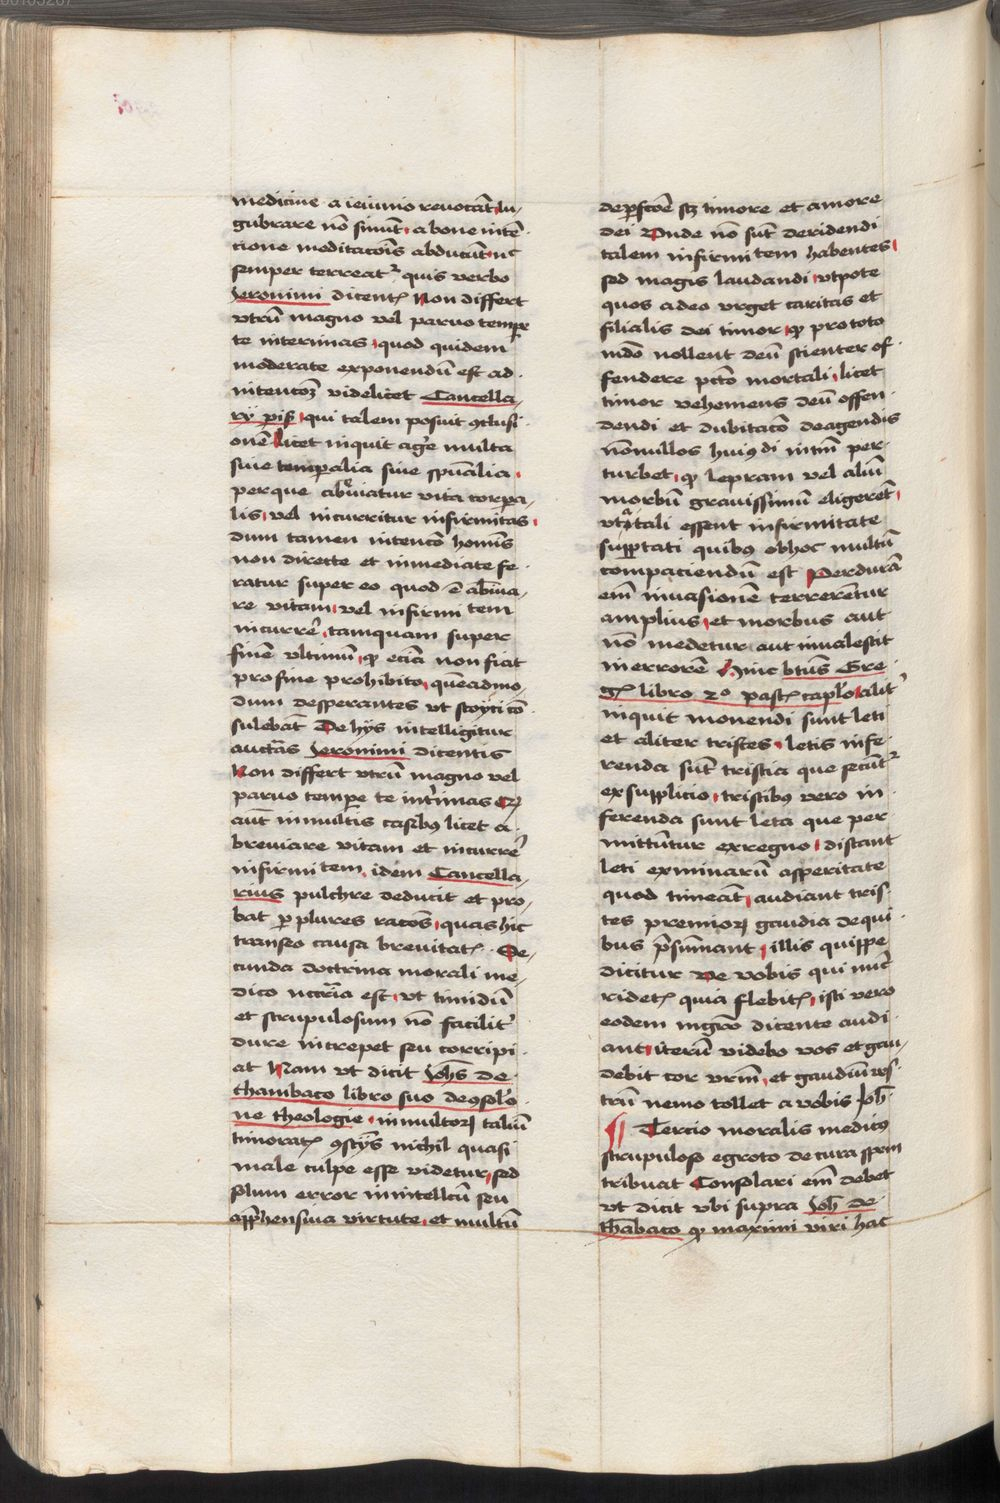 medicine a ieiunio reuocāt lu-
gubrare nō sinūt a bone intē-
cione meditacōis abducūt nc
semper terreat^r quis verbo
Jeronimi dicentꝭ Non differt
vtrū magno vel paruo tempr̄
te interimas quod quidem
moderate exponendū est ad
intencōeꝫ videlicet Cancella-
rij pīs qui talem posuit ꝯclusi
onē Licet inquit ag̓e multa
siue temporalia siue spūalia
perque abbreuiatur vita corpora-
lis vel incurritur infirmitas
dum tamen intencō homīs
non dirette et inmediate fe-
ratur super eo quod ē abbreuia-
re vitam vel infirmitem
incurre᷑ tamquam super
finē vltimū qꝫ eciā non fiat
pro fine prohibito quēadmo-
dum desperantes vt stoyci cō-
sulebāt De hijs intelligitur
auctās Jeronimi dicentis
Non differt vtrū magno vel
paruo tempe te int̓imas Qꝫ
aūt in multis casibꝰ licet a-
breuiare vitam et incurre᷑
infirmitem idem Cancella-
rius pulchre deducit et pro-
bat ꝑ plures racōes quas hic
transeo causa breuitatꝭ Se-
cunda doctrina morali me-
dico nccāria est vt timidū
et scrupulosum nō facilit̓
dure increpet seu corripi-
at Nam vt dicit Johēs de
thambaco libro suo de ꝯsolō
ne theologie in multoꝝ taliū
timoratꝭ ꝯscijs nichil quasi
male culpe esse videtur sed
solum error in intellcū seu
app̄hensiua virtute et multū
de perfcōe sꝫ timore et amore
dei Unde nō sūt deridendi
talem infirmitem habentes
sed magis laudandi vtpote
quos adeo vrget caritas et
filialis dei timor qꝫ pro toto
mūdo nollent deū scienter of-
fendere pctō mortali licet
timor vehemens deū offen-
dendi et dubitacō de agendis
nōnullos huiꝰdi nimī per-
turbet qꝫ lepram vel aliū
morbū grauissimū eligerēt
vt a tali essent infirmitate
supportati quibꝰ ob hoc multū
compaciendū est Per durā
em̄ inuasionē terrerētur
amplius et morbus aut
nō medetur aut inualescit
in errorē Hinc btūs Gre-
gꝭ libro 2º pastꝭ caplo alit̓
inquit monendi sunt leti
et aliter tristes letis infe-
renda sūt tristia que secūt^r
ex supplicio tristibꝰ vero in-
ferenda sunt leta que per-
mittūtur ex regno discant
leti ex minarū asperitate
quod timeāt audiant tris-
tes premioꝝ gaudia de qui-
bus p̄sumant illis quippe
dicitur Ve vobis qui nūc
ridetꝭ quia flebitꝭ isti vero
eodem mgrō dicente audi-
ant iterū videbo vos et gau-
debit cor vrm̄ et gaudiū ves-
trū nemo tollet a vobis Joh̄
¶ Tercio moralis medicꝰ
scrupuloso egroto de cura sperm
tribuat Consolari em̄ debet
vt dicit vbi supra Joh̄ de
thābaco qꝫ maximi viri hac